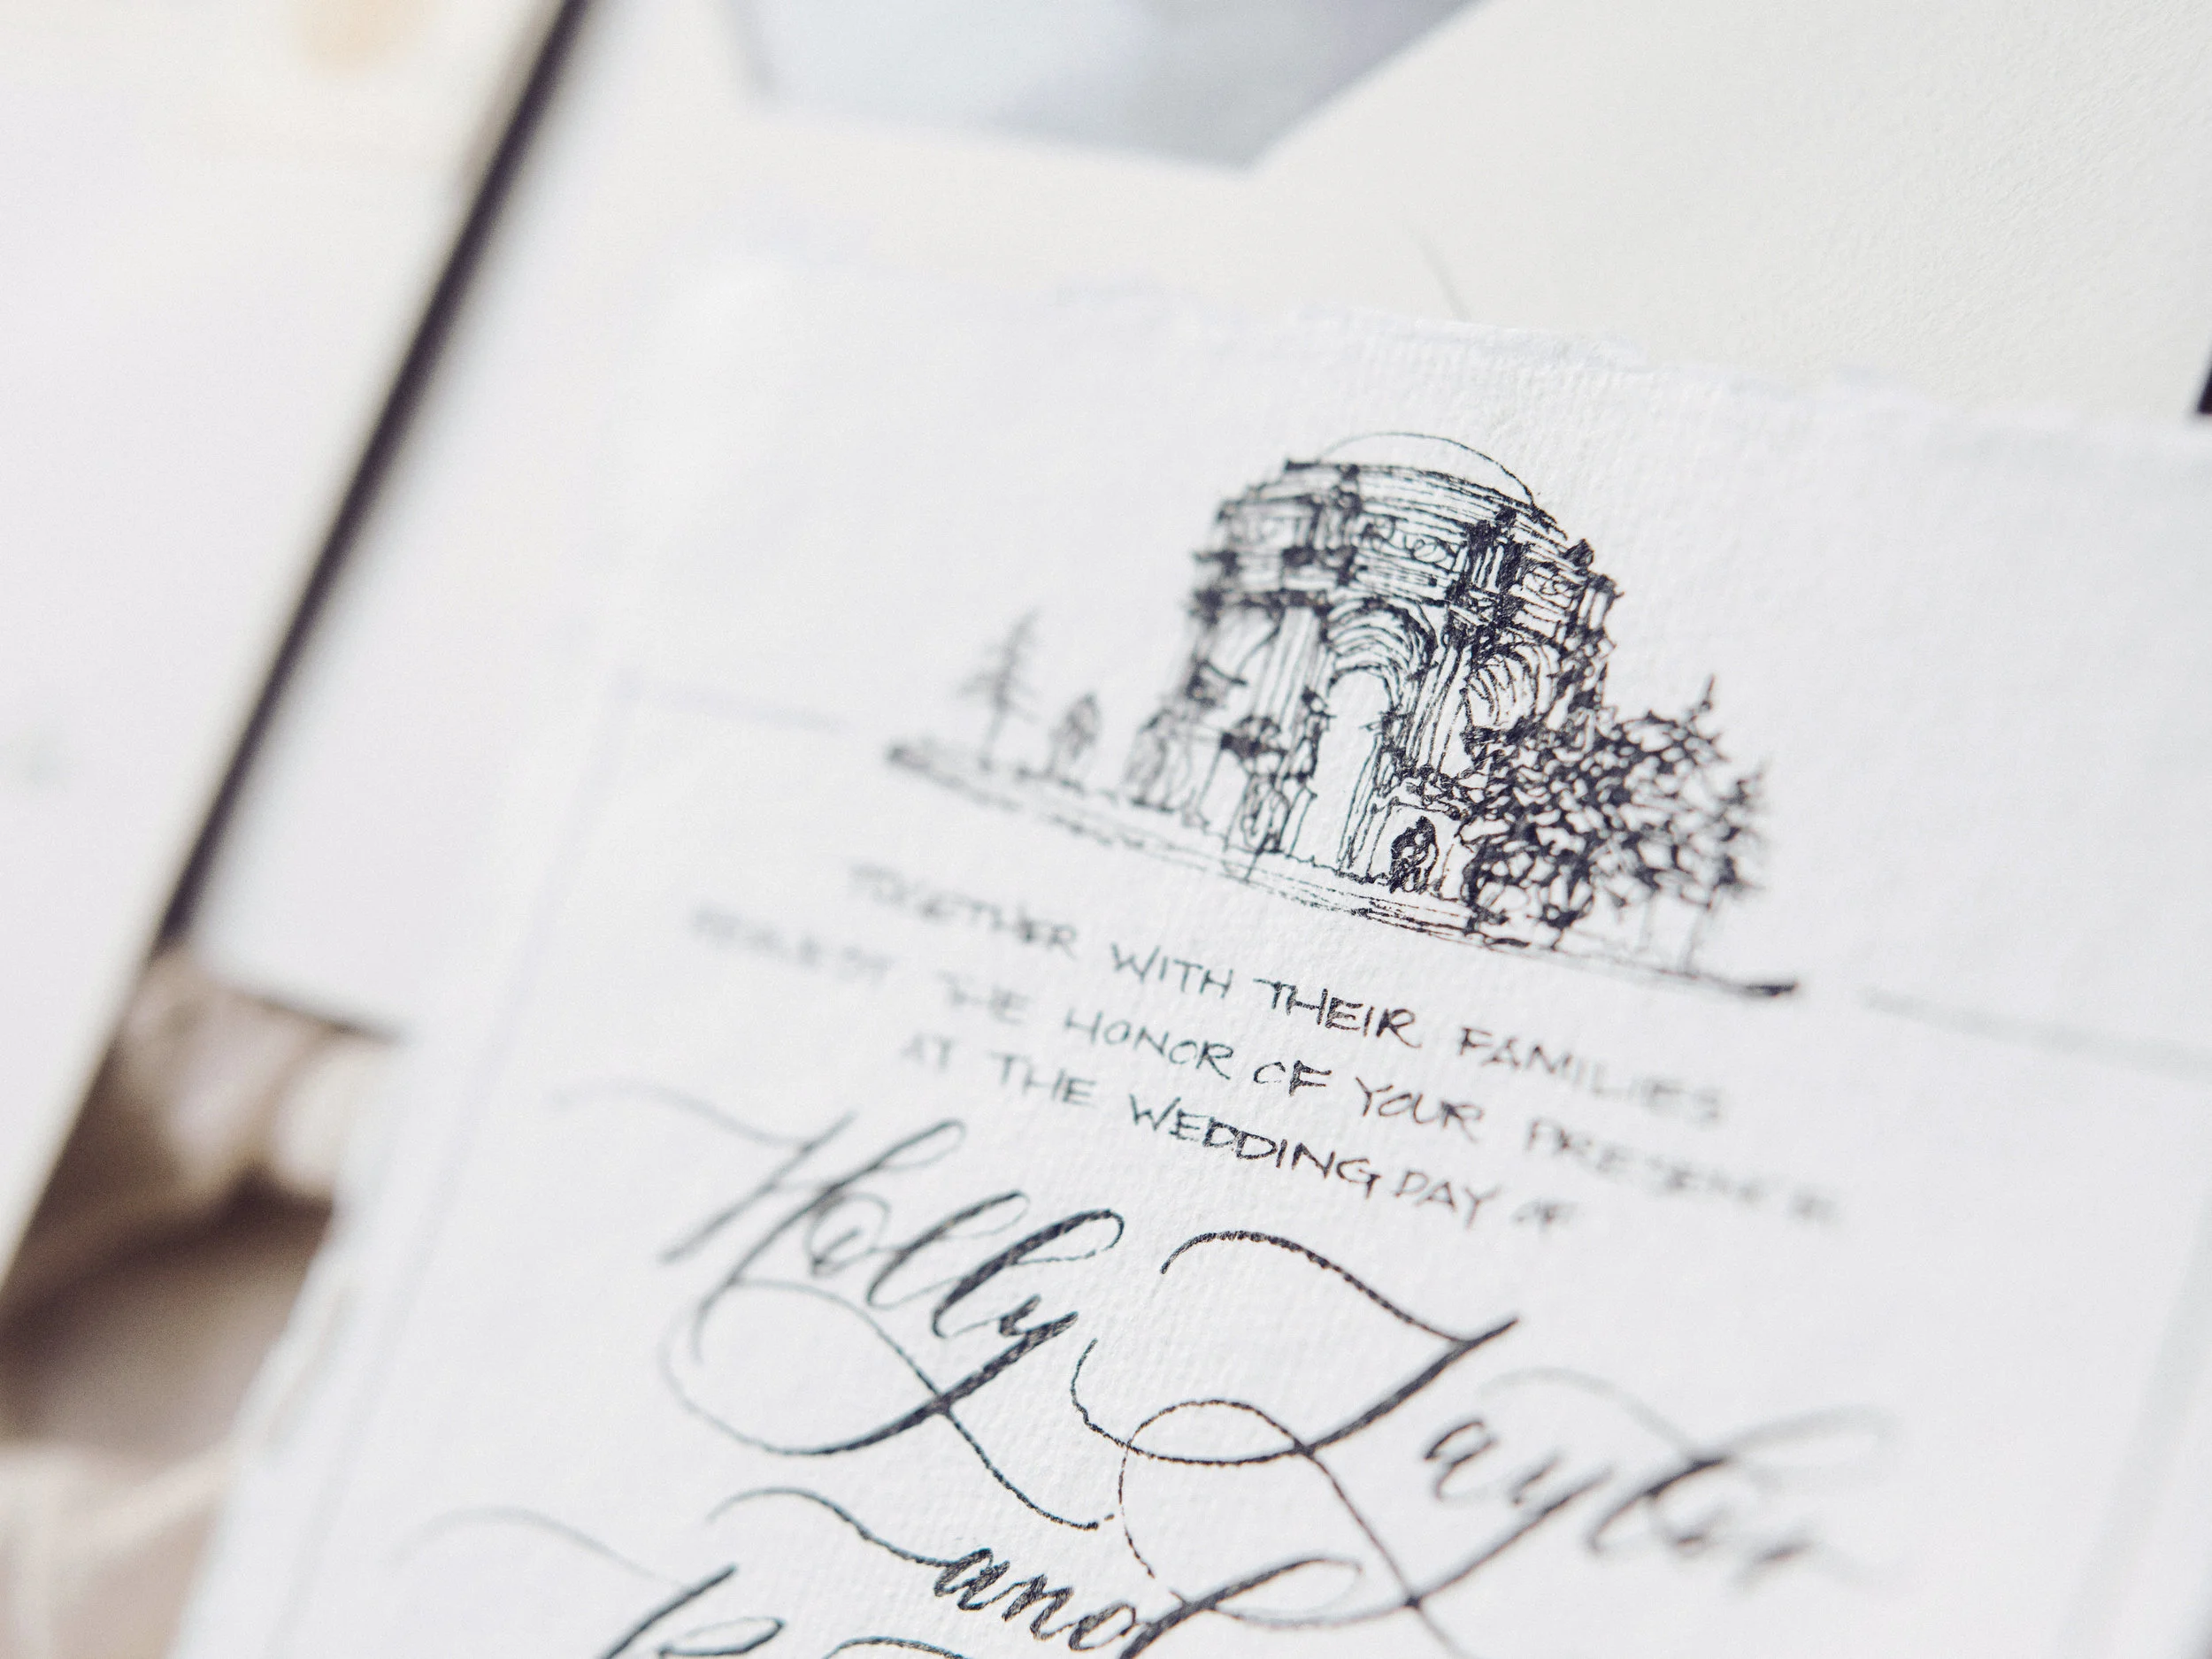 TOGETHER WITH THEIR FAMILIES
REQUEST THE HONOR OF YOUR PRESENCE
AT THE WEDDING DAY OF
Holly Taylor
and